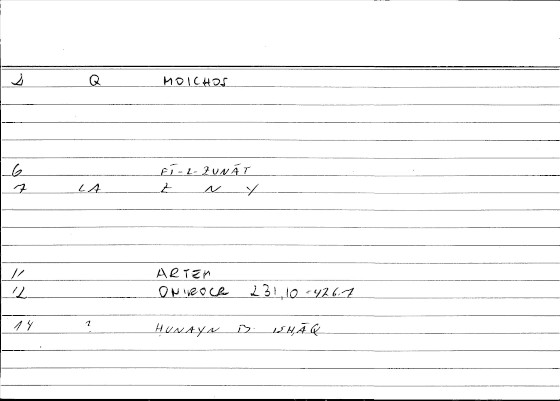 D Q MOICHOS
6 FĪ-L-ZUNĀT
7 LA Z N Y
11 ARTEM
12 ONIROCR 231,10-426.7
14 ? HUNAYN B ISHĀQ